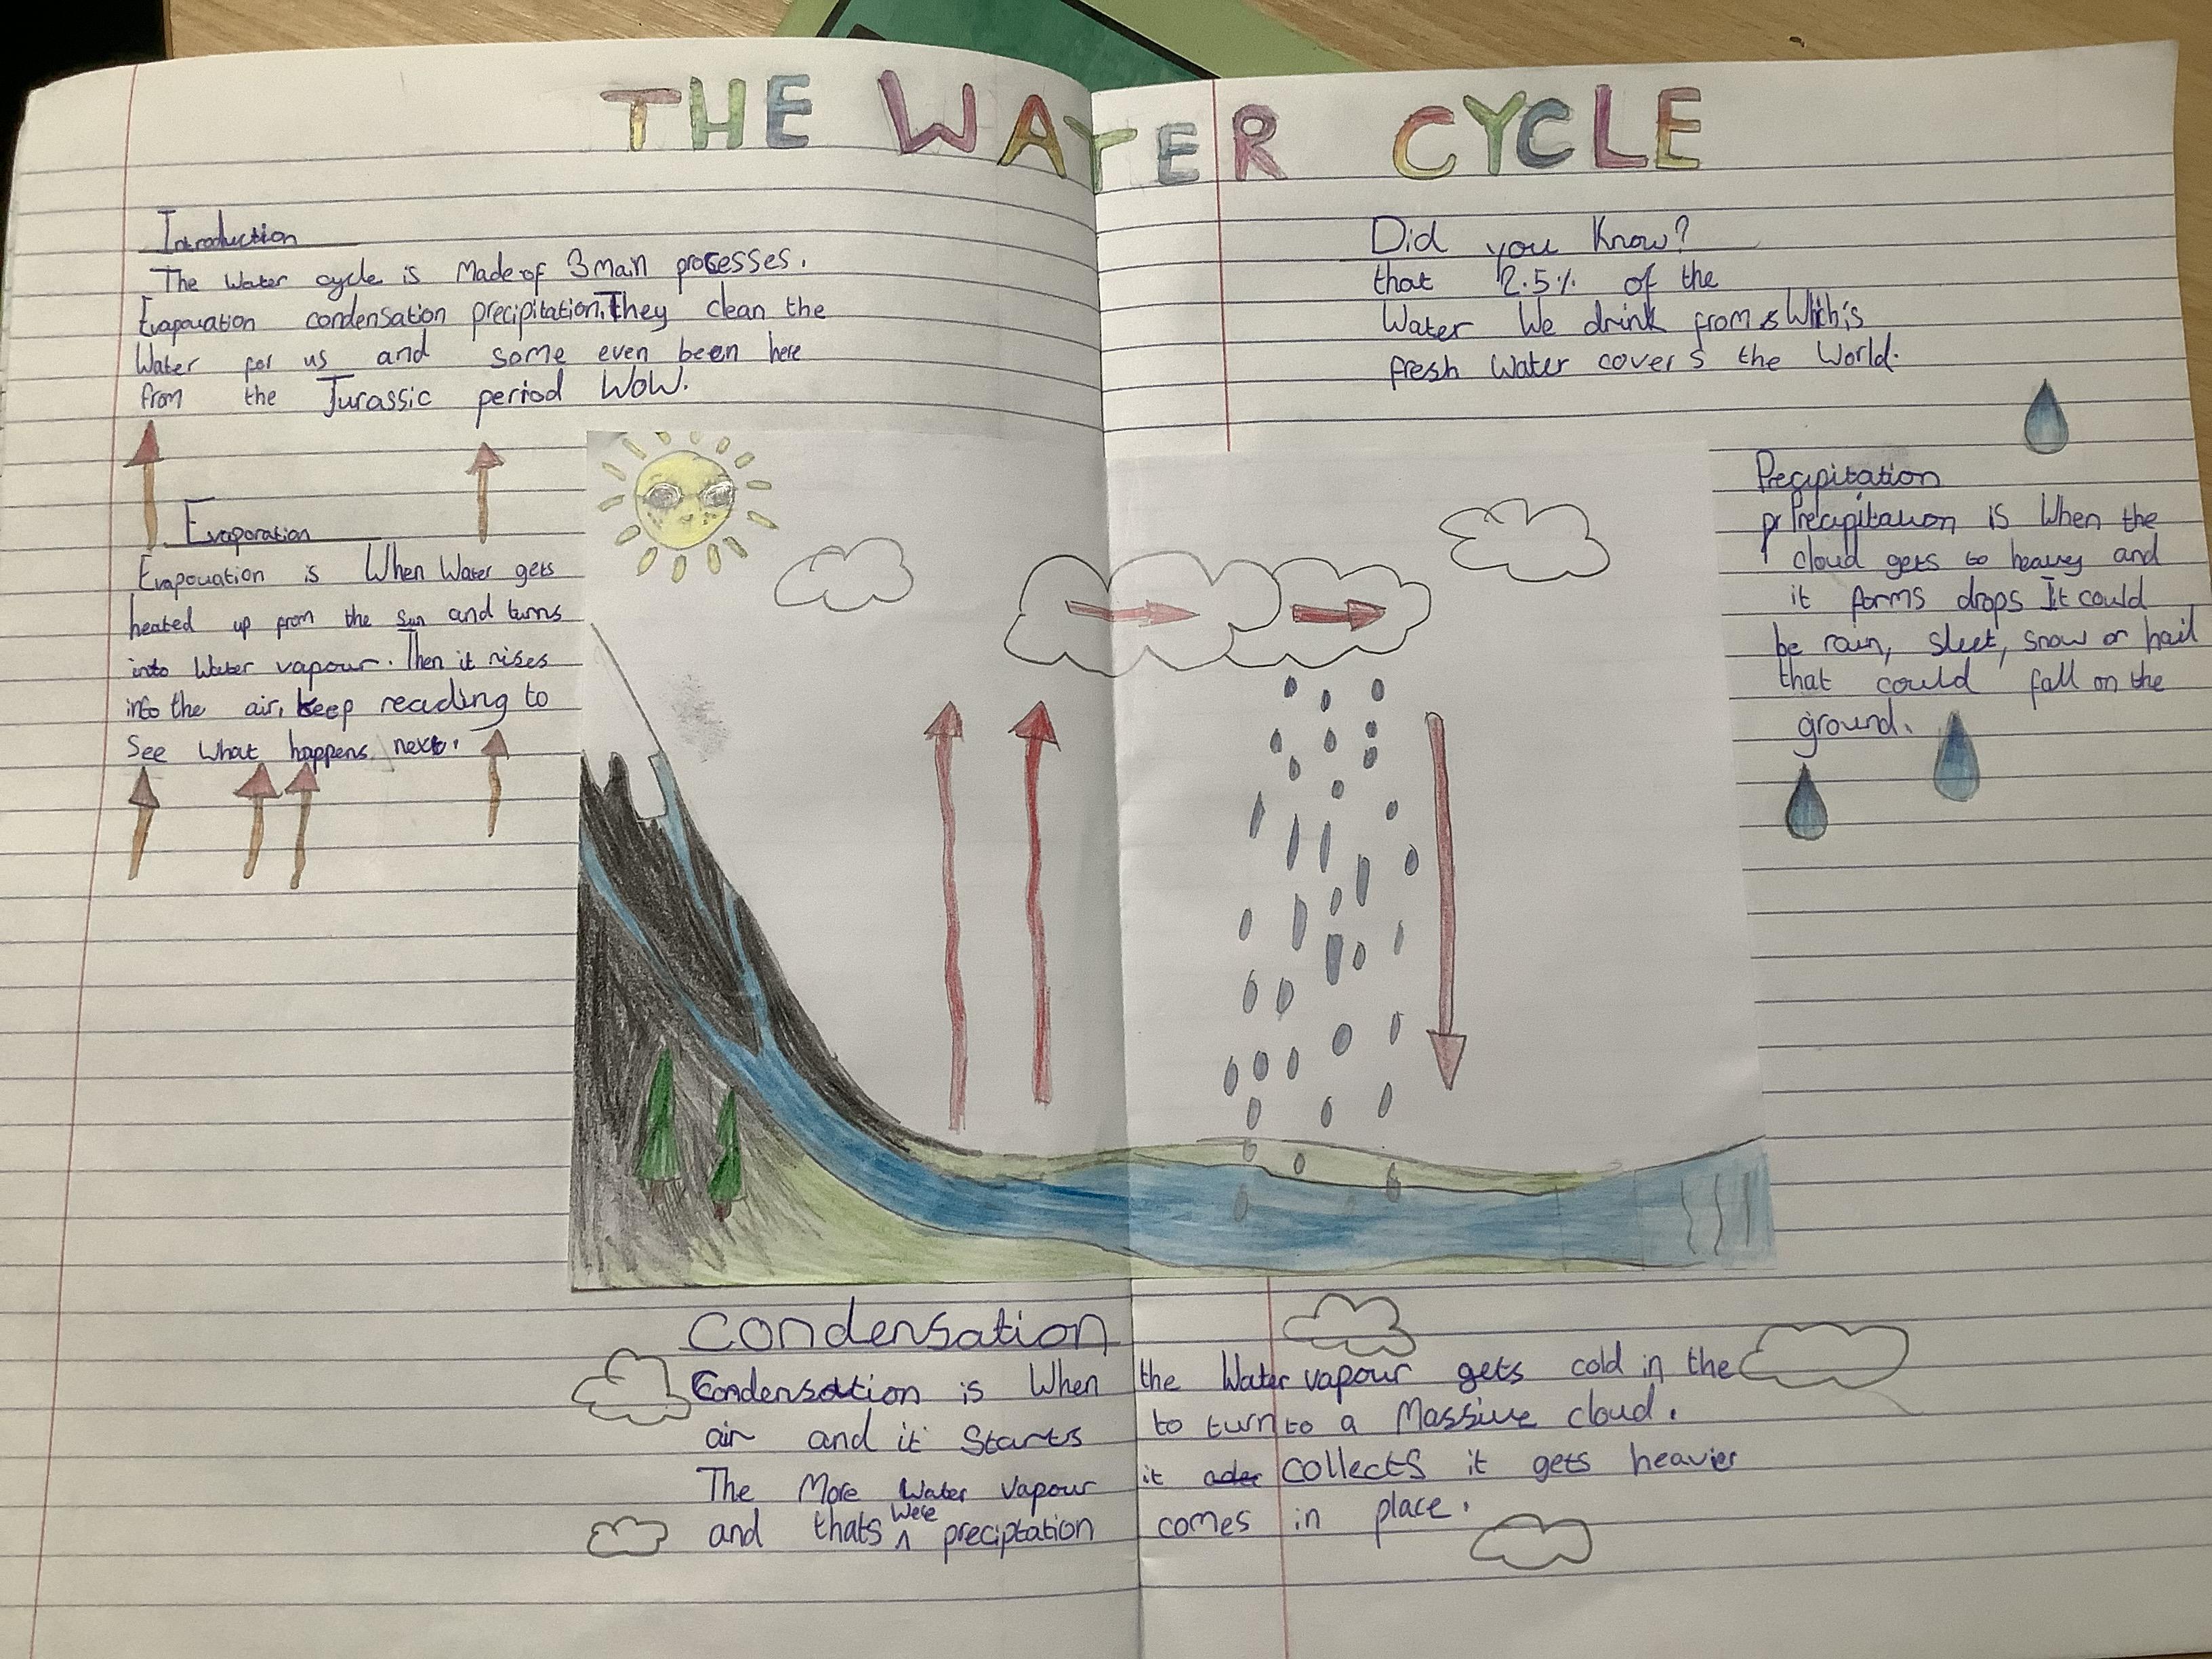 THE WATER CYCLE
Introduction
The Water cycle is Made of 3 main processes.
Evapouation condensation precipitation. They clean the
Water for us and some even been here
from the Jurassic period WoW.
Did you Know?
that 2.5% of the
Water We drink from Which is
fresh Water covers the World.
Evaporation
Evapouation is When Water gets
heated up from the sun and turns
into Water vapour. Then it rises
into the air, keep reading to
See What happens next.
Precipitation
pr Precipitation is When the
cloud gets to heavy and
it forms drops It could
be rain, sleet, snow or hail
that could fall on the
ground.
Condensation
Condensation is When the Water vapour gets cold in the
air and it Starts to turn to a Massive cloud.
The More Water Vapour it collects it gets heavier
and thats Were preciptation comes in place.